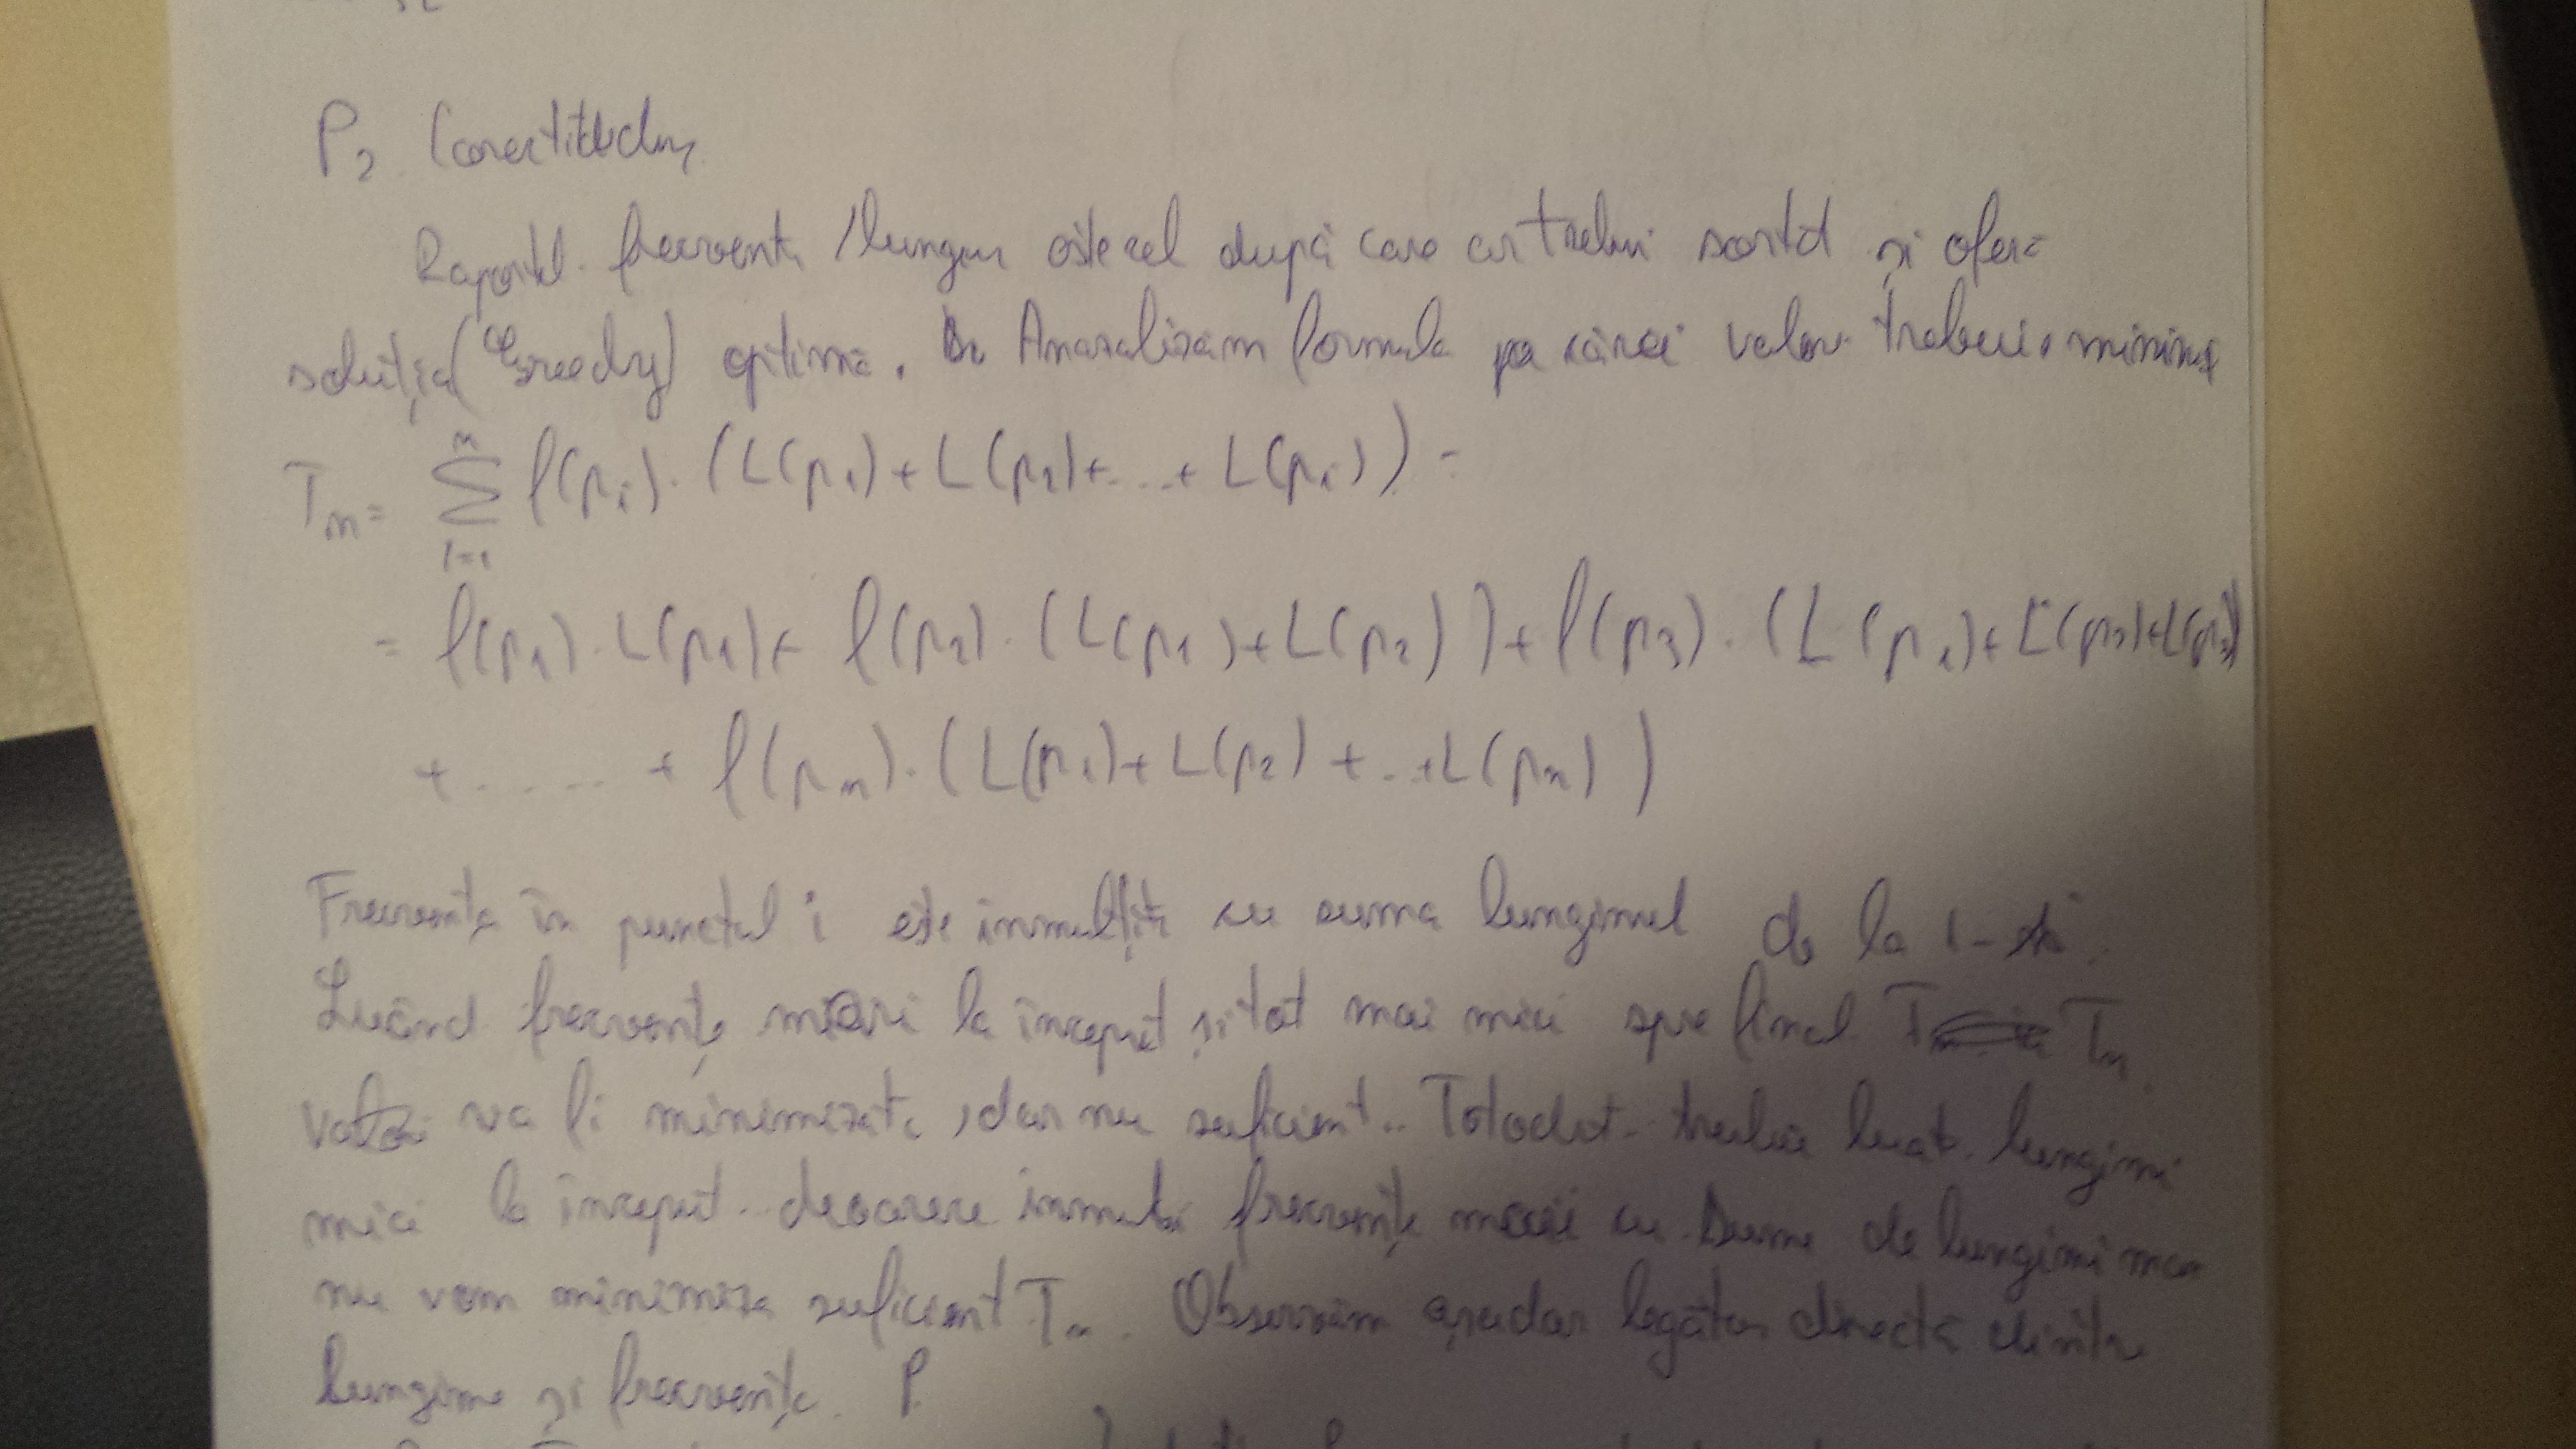 P2 Corectitudine
Raportul frecventa / lungime este cel după care ar trebui sortat și oferă
soluția (Greedy) optimă. Anazalizam formula pa cărei valoare trebuie minimi
Tn = Σ i=1 n f(pi) · (L(p1) + L(p2) + ... + L(pi)) =
= f(p1) · L(p1) + f(p2) · (L(p1) + L(p2)) + f(p3) · (L(p1) + L(p2) + L(p3))
+ ...... + f(pn) · (L(p1) + L(p2) + ... + L(pn))
Frecvența în punctul i este înmulțită cu suma lungimil de la 1 - i
Luând frecvențe mari la început și tot mai mici spre final Tn
va fi minimizată, dar nu suficient. Totodat trebuie luat lungimi
mici la început deoarece frecvențe mari cu sume de lungimi mari
nu vom minimiza suficient Tn. Observăm așadar legătura directă dintre
lungime și frecvență. P